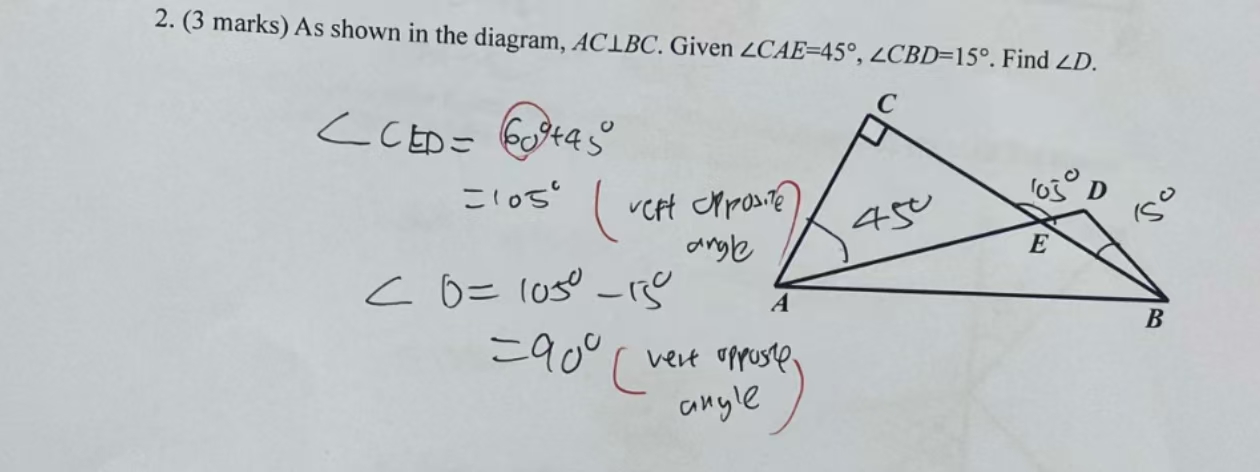 2. (3 marks) As shown in the diagram, AC⊥BC. Given ∠CAE=45°, ∠CBD=15°. Find ∠D.
∠CED= 60°+45°
=105° (vert opposite
angle)
∠D= 105°-15°
=90° (vert opposte
angle)
C
105°
D
15°
45°
E
A
B